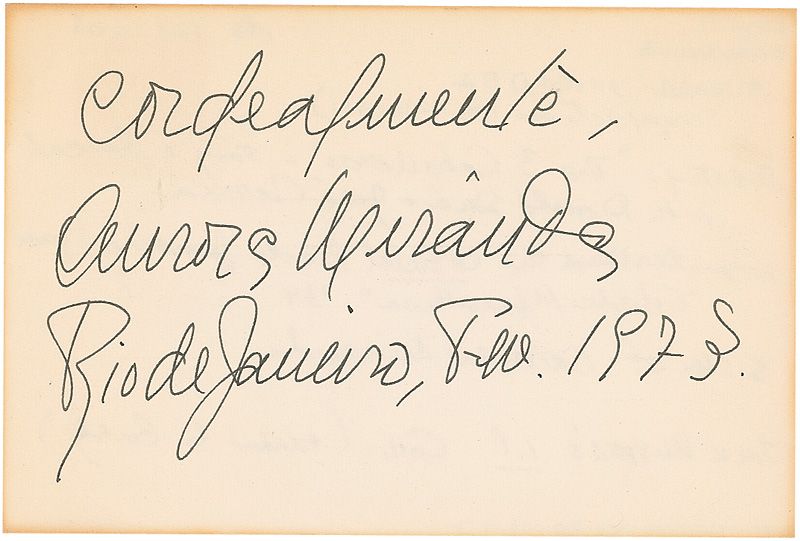 Cordealmente,
Aurora Miranda
Rio de Janeiro, Fev. 1973.